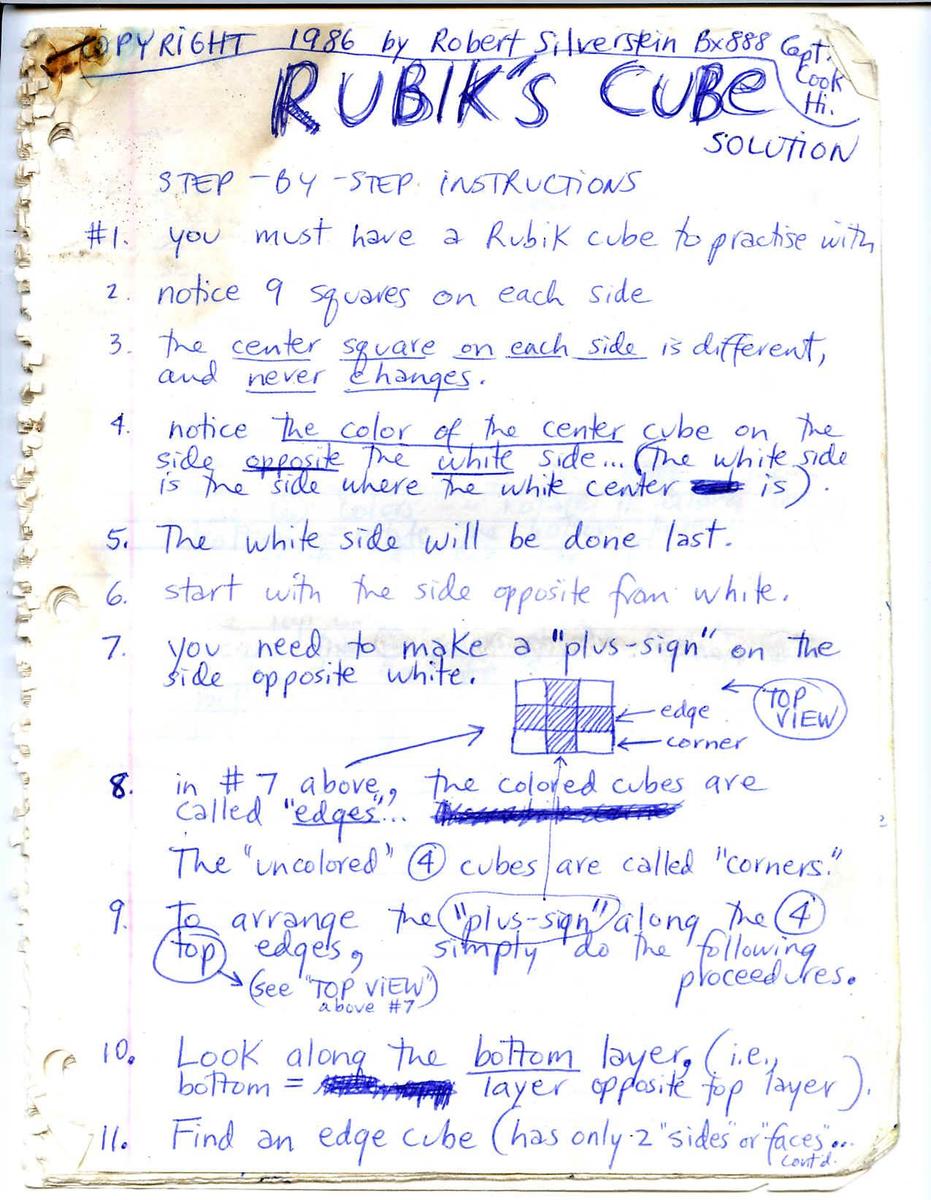 COPYRIGHT 1986 by Robert Silverstein Bx888 Capt. Cook Hi.
RUBIK'S CUBE
SOLUTION
STEP-BY-STEP INSTRUCTIONS
#1. you must have a Rubik cube to practise with
2. notice 9 squares on each side
3. the center square on each side is different,
and never changes.
4. notice the color of the center cube on the
side opposite the white side... (The white side
is the side where the white center is).
5. The white side will be done last.
6. start with the side opposite from white.
7. you need to make a "plus-sign" on the
side opposite white.
TOP VIEW
edge
corner
8. in #7 above, the colored cubes are
called "edges"...
The "uncolored" 4 cubes are called "corners."
9. To arrange the "plus-sign" along the 4
top edges, simply do the following
proceedures.
(see "TOP VIEW")
above #7
10. Look along the bottom layer, (i.e.,
bottom = layer opposite top layer).
11. Find an edge cube (has only 2 "sides" or "faces"...
cont'd.